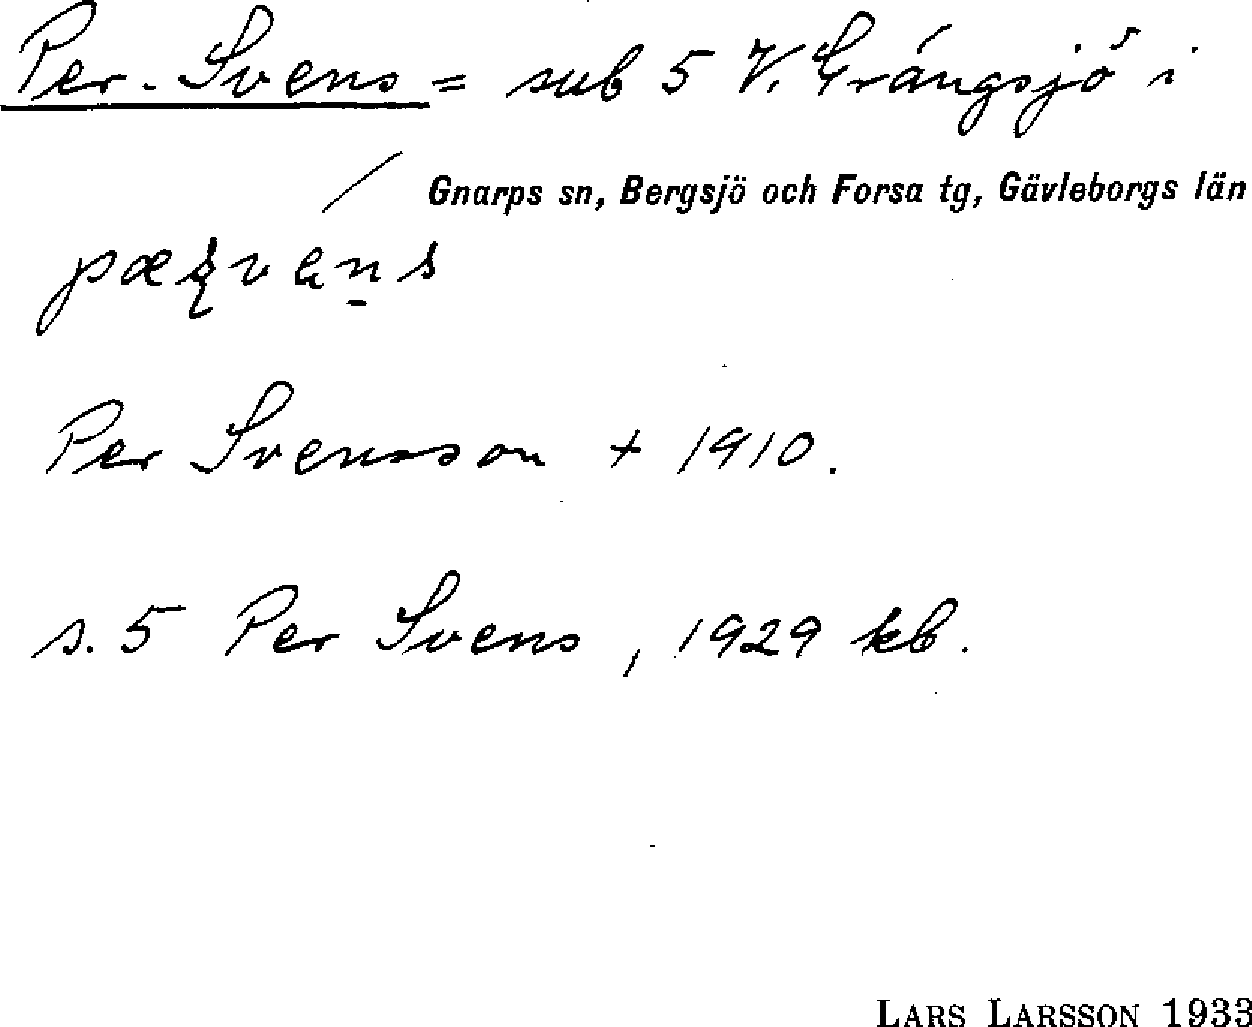 Per-Svens = sub 5 V. Grängsjö i
Gnarps sn, Bergsjö och Forsa tg, Gävleborgs län
Per Svensson + 1910.
s. 5 Per Svens, 1929 kb.
LARS LARSSON 1933